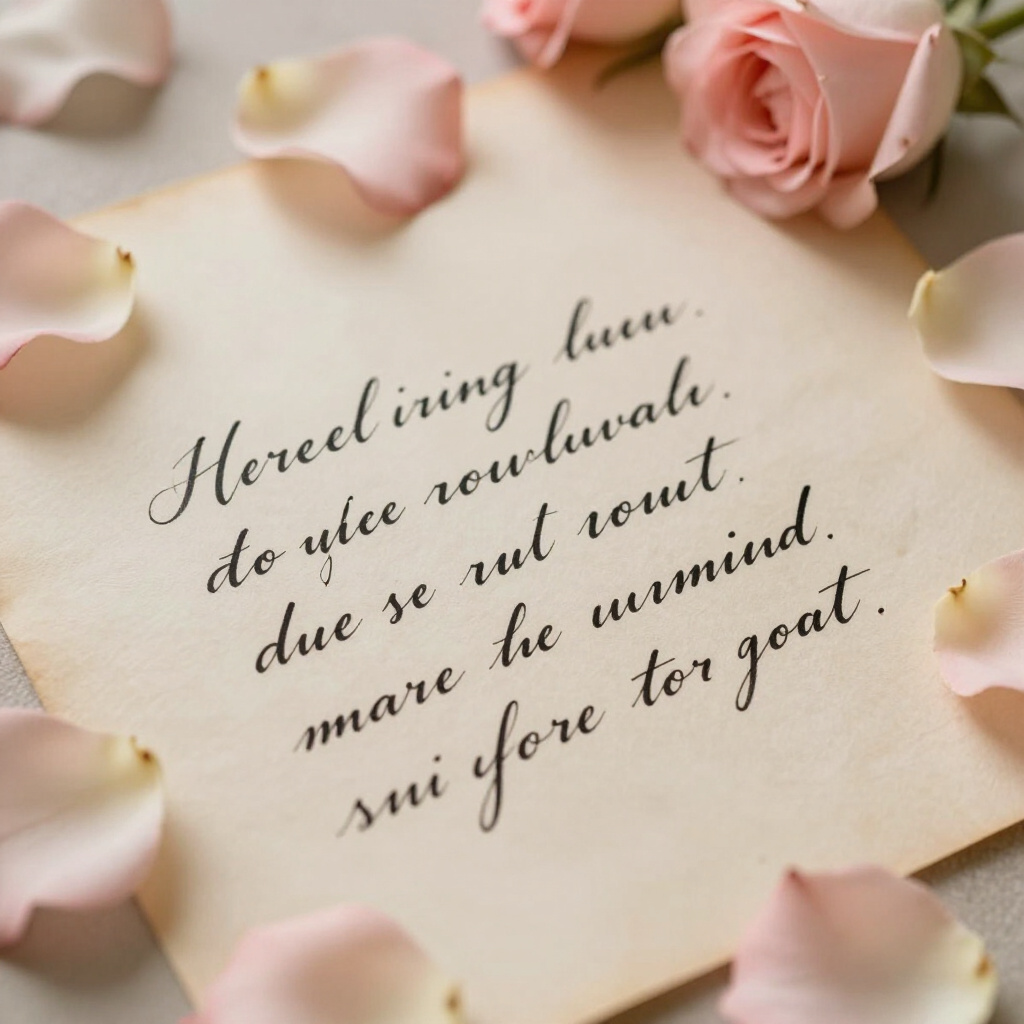 Hereel iring luuu.
do ylee rowluvalr.
due se rut rout.
mare he uurmind.
sni yfore tor goat.